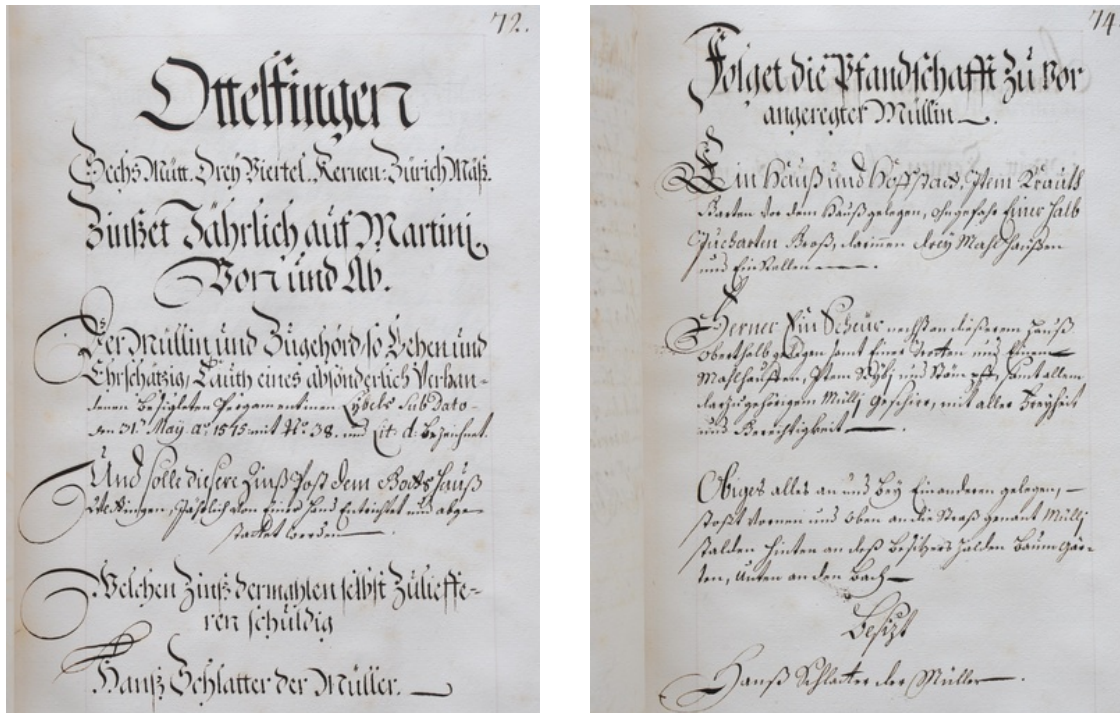 72.
Ottelfingen
Sechs Mütt. Drey Viertel. Kernen. Zürich Mäß.
Zinßet Jährlich auf Martini,
Von und Ab.
Der Müllin und Zugehörd, so Lehen und
Ehrschätzig, Lauth eines absonderlich Verhan-
denen Besigleten Pergamentinen Lybels Sub Dato
den 31. May aº 1575 mit Nº 38. und Lit: d: Bezeichnet.
Und solle diesere Zinß Post dem Gotts Hauß
Wettingen, Jährlich von Einer Hand Entrichtet und abge-
stattet werden
Welchen Zinß dermahlen selbst Zülieffe-
ren schuldig
Hanß Schlatter der Müller.
74
Folget die Pfandschafft Zu vor
angeregter Müllin.
Ein Hauß und Hoffstatt, Item Krauth
Garten vor dem Hauß gelegen, ohngefahr Einer halb
Jucharten Groß, darinnen drey Mahl Hauffen
und Ein Rellen
Ferner Ein Scheur nechst an dißerem Hauß
oberthalb gelegen samt Einer Trotten und Einem
Mahlhauffen, Item Rybj und Stampff, samt allem
darzugehörigem Müllj Geschirr, mit aller Freyheit
und Gerechtigkeit
Obiges alles an und bey Einanderen gelegen,
stoßt Vornen und oben an die Straß genant Müllj
stalden hinten an deß Besitzers halden Baum Gär-
ten, Unten an den Bach
Besizt
Hanß Schlatter der Müller